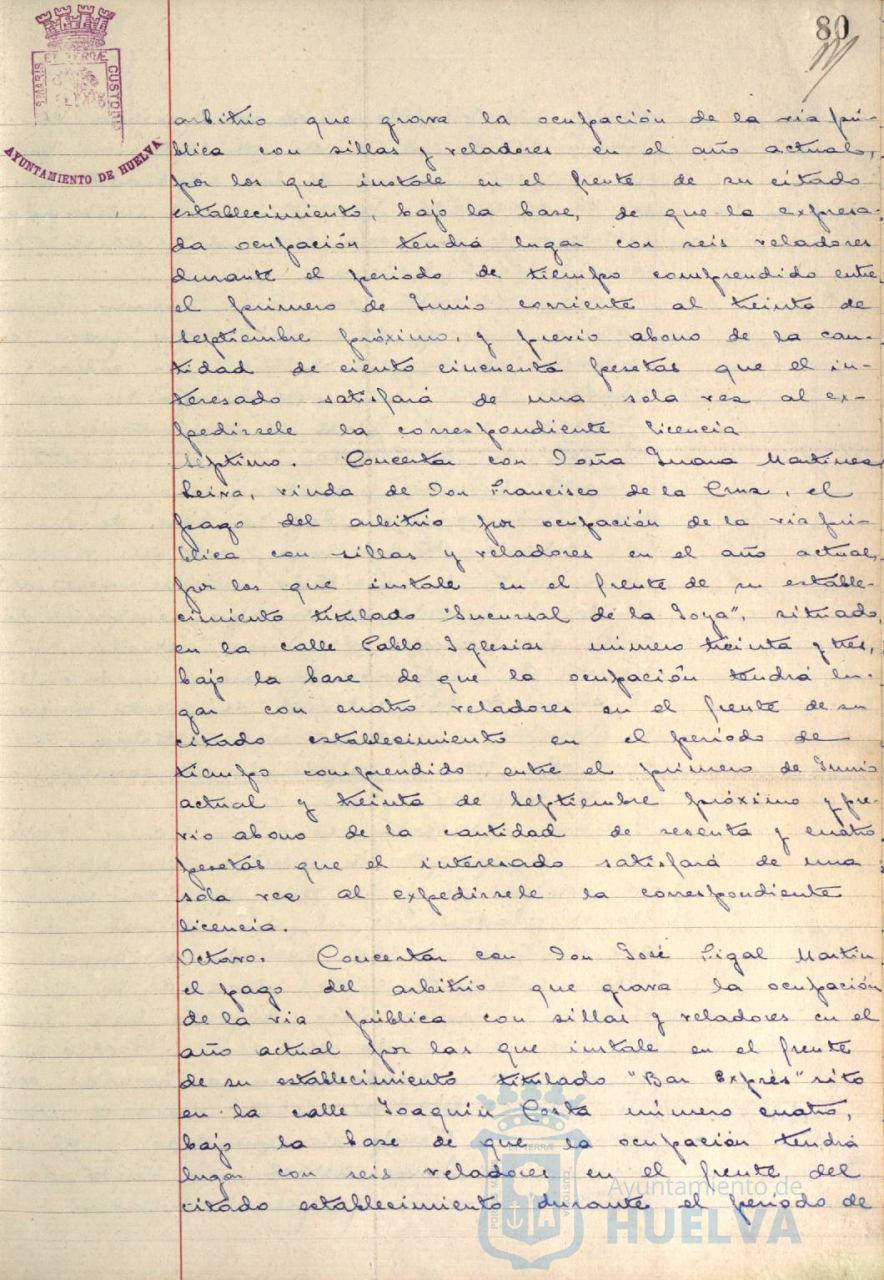 80
ET TERRÆ
CUSTODIA
AYUNTAMIENTO DE HUELVA
arbitrio que grava la ocupación de la via pú-
blica con sillas y veladores en el año actual,
por los que instale en el frente de su citado
establecimiento, bajo la base, de que la expresa-
da ocupación tendrá lugar con seis veladores
durante el periodo de tiempo comprendido entre
el primero de Junio corriente al treinta de
septiembre próximo, y previo abono de la can-
tidad de ciento cincuenta pesetas que el in-
teresado satisfará de una sola vez al ex-
pedirsele la correspondiente licencia
Séptimo. Concertar con Doña Juana Martinez
Leiva, viuda de Don Francisco de la Cruz, el
pago del arbitrio por ocupación de la via pú-
blica con sillas y veladores en el año actual,
por los que instale en el frente de su estable-
cimiento titulado "Sucursal de la Joya", situado
en la calle Pablo Iglesias número treinta y tres,
bajo la base de que la ocupación tendrá lu-
gar con cuatro veladores en el frente de su
citado establecimiento en el período de
tiempo comprendido entre el primero de Junio
actual y treinta de Septiembre próximo y pre-
vio abono de la cantidad de sesenta y cuatro
pesetas que el interesado satisfará de una
sola vez al expedirsele la correspondiente
licencia.
Octavo. Concertar con Don José Martin
el pago del arbitrio que grava la ocupación
de la via pública con sillas y veladores en el
año actual por las que instale en el frente
de su establecimiento titulado "Bar Exprés" sito
en la calle Joaquín Costa número cuatro,
bajo la base de que la ocupación tendrá
lugar con seis veladores en el frente del
citado establecimiento durante el periodo de
Ayuntamiento de
HUELVA